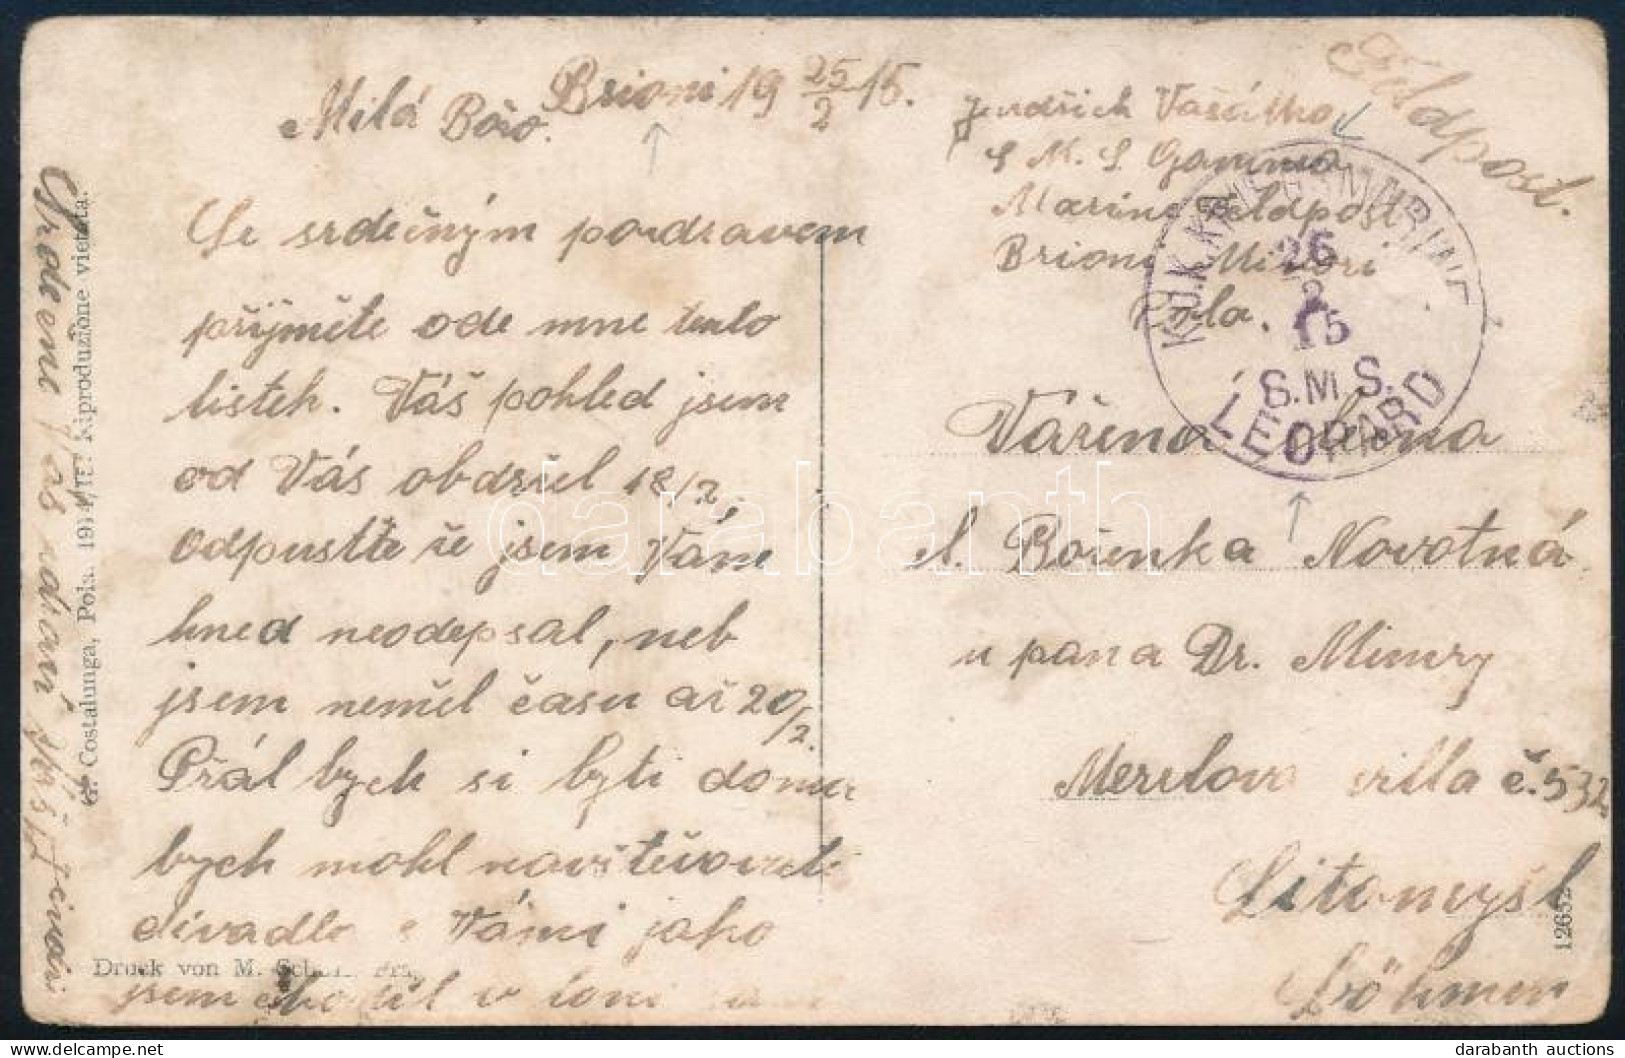 Brioni 19 25/2 15.
Milá Božo.
Se srdečným pozdravem
přijměte ode mne tento
lístek. Váš pohled jsem
od Vás obdržel 18/2,
odpusťte že jsem Vám
hned neodepsal, neb
jsem neměl času až 20/2.
Přál bych si byti doma
bych mohl navštěvovati
divadlo s Vámi jako
jsem chodil v loni
Srdečně Vás zdraví Váš
G. Costalunga, Pola. 1914/15. Riproduzione vietata.
Druck von M. Schulz, Prag
Feldpost.
Jindřich Vašátko
S. M. S. Gamma
Marinefeldpost
Brioni Minori
Pola.
K.U.K. KRIEGSMARINE
26
2
15
S.M.S.
LEOPARD
Vážená slečna
sl. Boženka Novotná
u pana Dr. Mimry
villa č. 532
Litomyšl
Böhmen
12652
darabanth
darabanth auctions